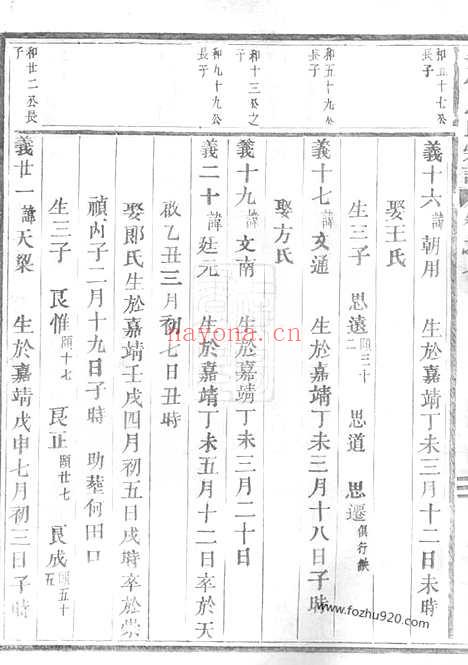 和五十七公
長子
義十六諱朝用 生於嘉靖丁未三月十二日未時
娶王氏
生三子 思遠 思道 思遷俱行缺
和五十九公
長子
義十七諱文通 生於嘉靖丁未三月十八日子時
娶方氏
和十三公之
子
義十九諱文南 生於嘉靖丁未三月二十日
和九十九公
長子
義二十諱廷元 生於嘉靖丁未五月十二日卒於天
啟乙丑三月初七日丑時
娶郎氏生於嘉靖壬戌四月初五日戌時卒於崇
禎丙子二月十九日子時 助葬何田口
生三子 良惟 良正 良成
和廿二公長
子
義廿一諱天梁 生於嘉靖戊申七月初三日子時
nayona.cn
www.fozhu920.com